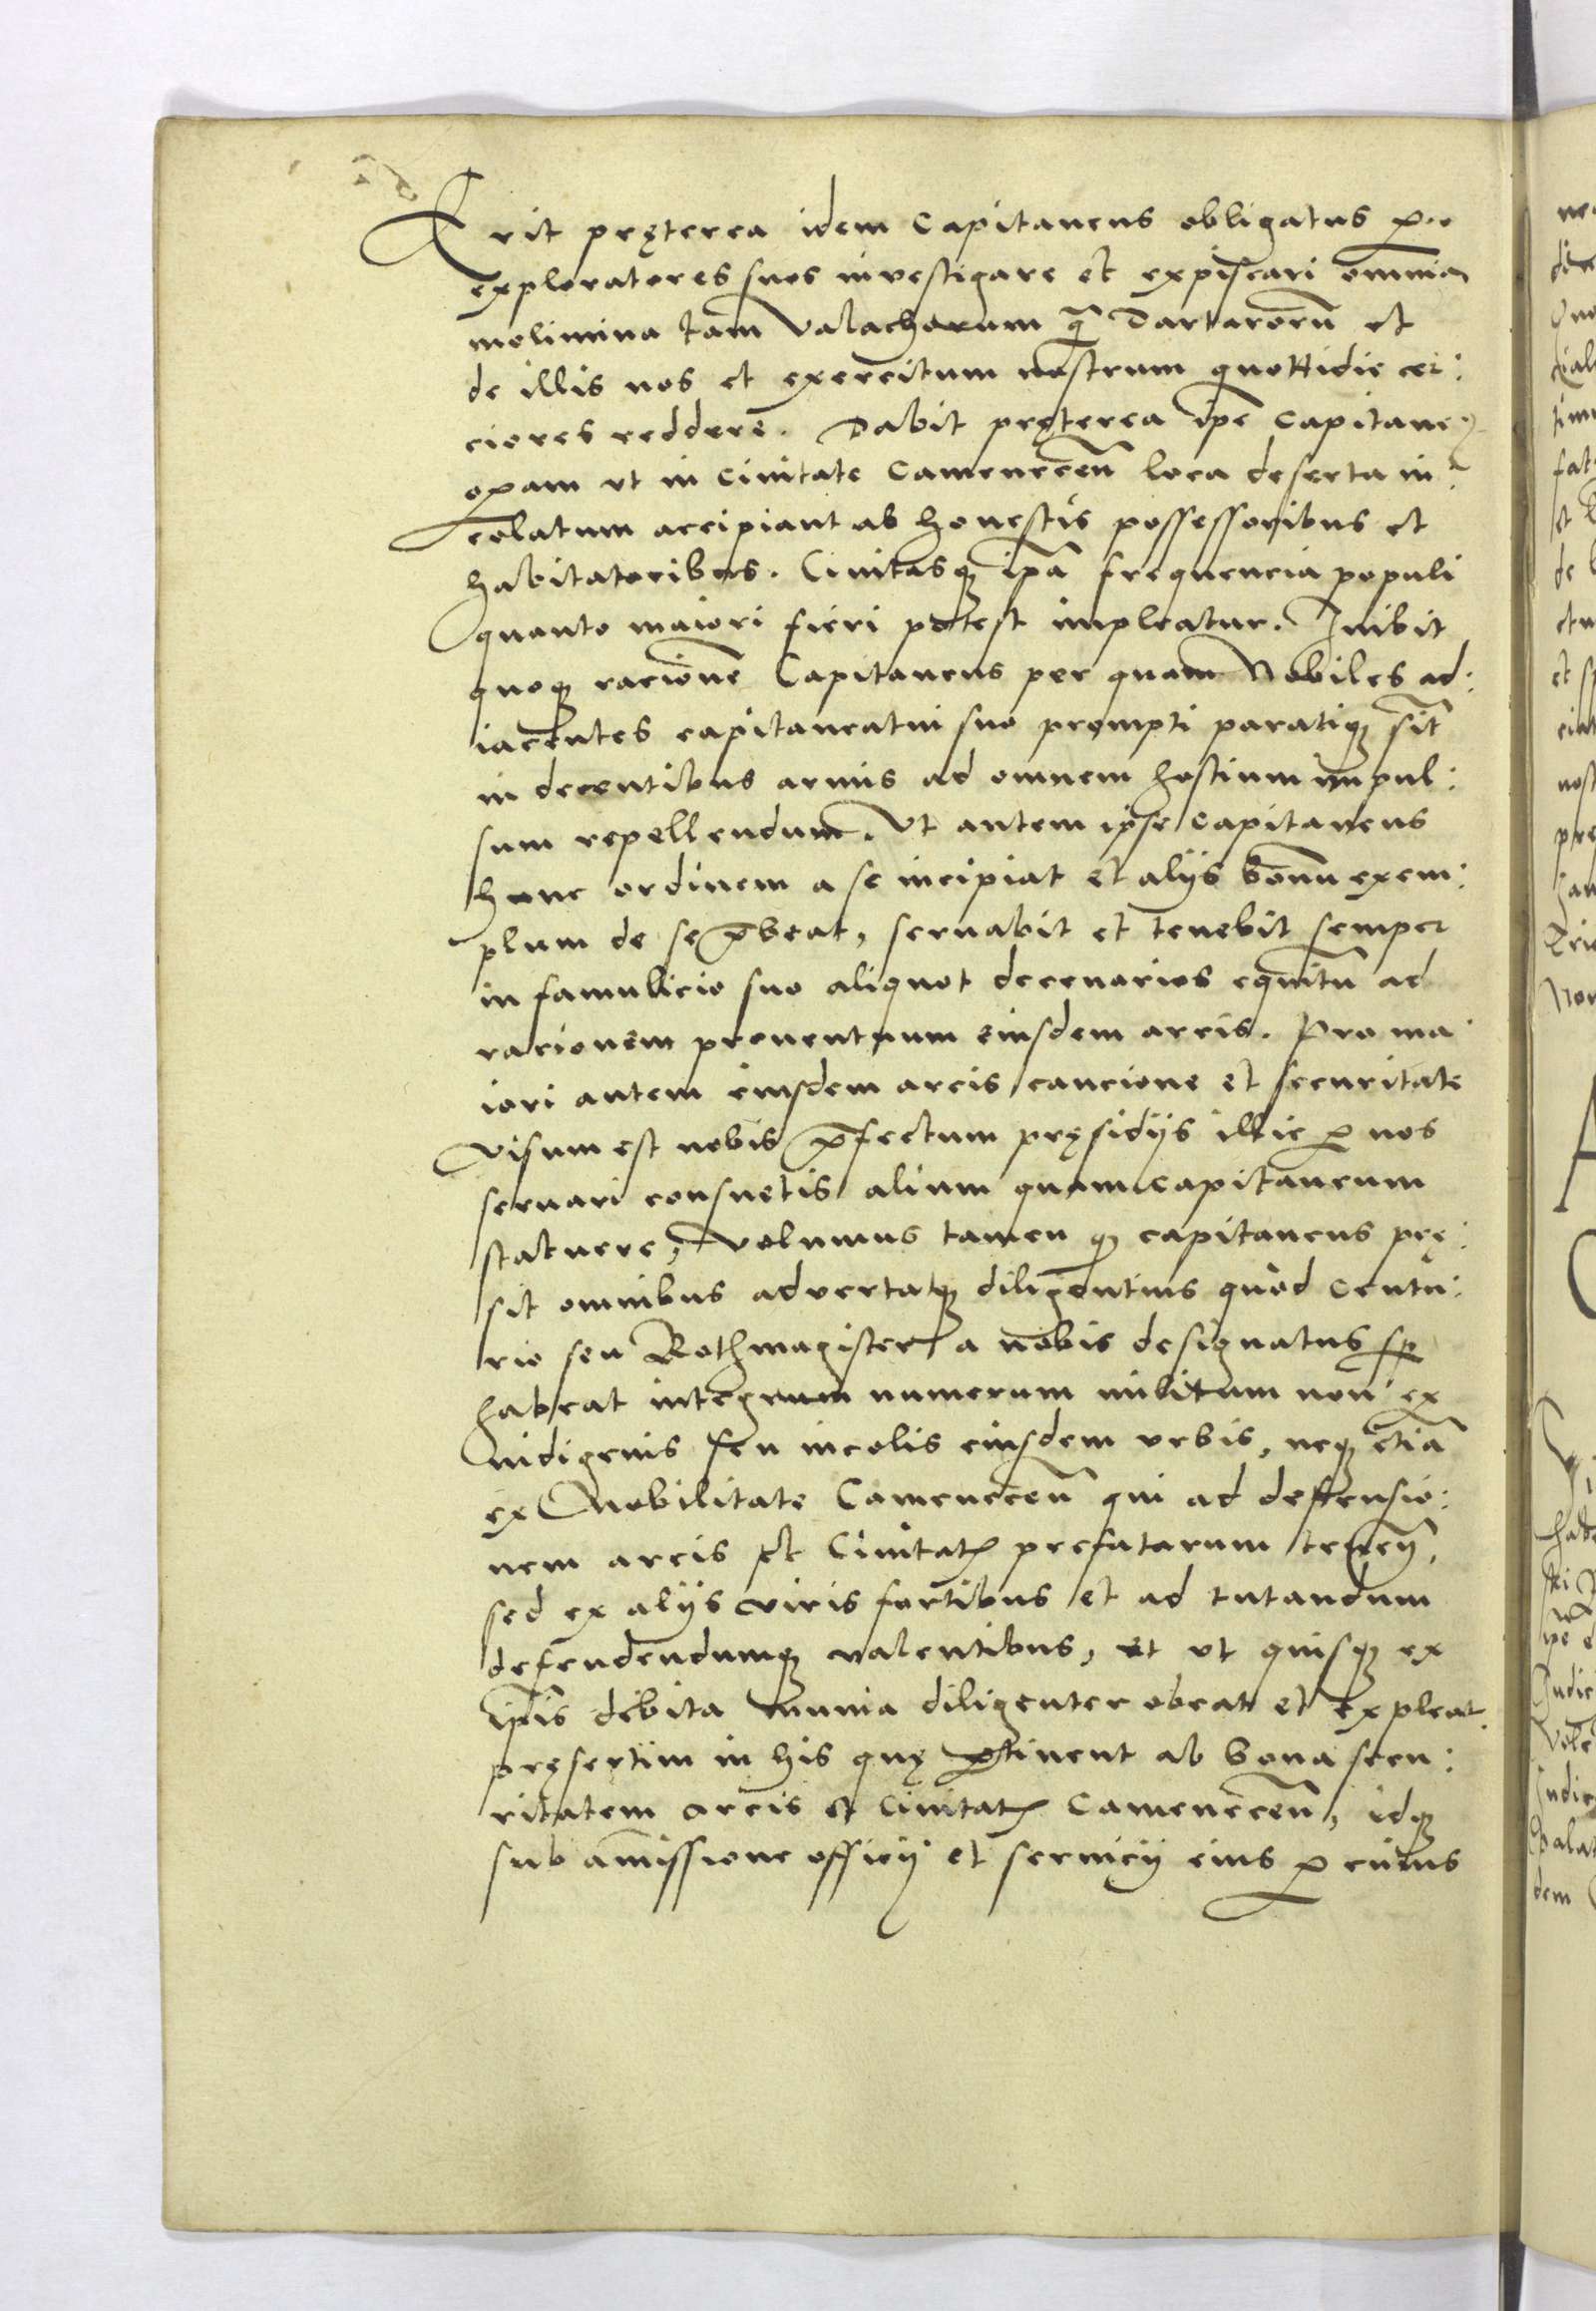 Erit pręterea idem Capitaneus obligatus per
exploratores suos investigare et expiscari omnia
molimina tam Valachorum q̄ Dartarorū et
de illis nos et exercitum nostrum quottidie cer:
ciores reddere. Dabit pręterea ipē Capitaneꝰ
oꝑam ut in Civitate Camenecēn loca deserta in:
colatum accipiant ab honestis possessoribus et
habitatoribus. Civitasqꝫ ipā frequencia populi
quanto maiori fieri potest impleatur. Inibit
quoqꝫ racionē Capitaneus per quam Nobiles ad:
iacentes capitaneatui suo prompti paratiqꝫ sīt
in decentibus armis ad omnem hostium impul:
sum repellendum. Ut autem ipse Capitaneus
hunc ordinem a se incipiat et alijs bonū exem:
plum de se p̄beat, servabit et tenebit semper
in famulicio suo aliquot decenarios equitū ad
racionem proventuum eiusdem arcis. Pro ma
iori autem eiusdem arcis caucione et securitate
visum est nobis p̄fectum pręsidijs illic ꝑ nos
servari consuetis alium quam capitaneum
statuere, volumus tamen qꝫ capitaneus prę:
sit omnibus advertatqꝫ diligentius quod Centu:
rio seu Rothmagister a nobis designatus sꝑ
habeat integrum numerum militum non ex
indigenis seu incolis eiusdem urbis, neqꝫ etiā
ex Nobilitate Camenecēn qui ad deffensio:
nem arcis et Civitatꝭ prefatarum tenen̄,
sed ex alijs viris fortibus et ad tutandum
defendendumqꝫ valentibus, et ut quisqꝫ ex
ipīs debita munia diligenter obeat et expleat.
pręsertim in his quę ꝑtinent ab bona secu:
ritatem arcis et Civitatꝭ Camenecēn, idqꝫ
sub amissione officij et servicij eius ꝑ cuius